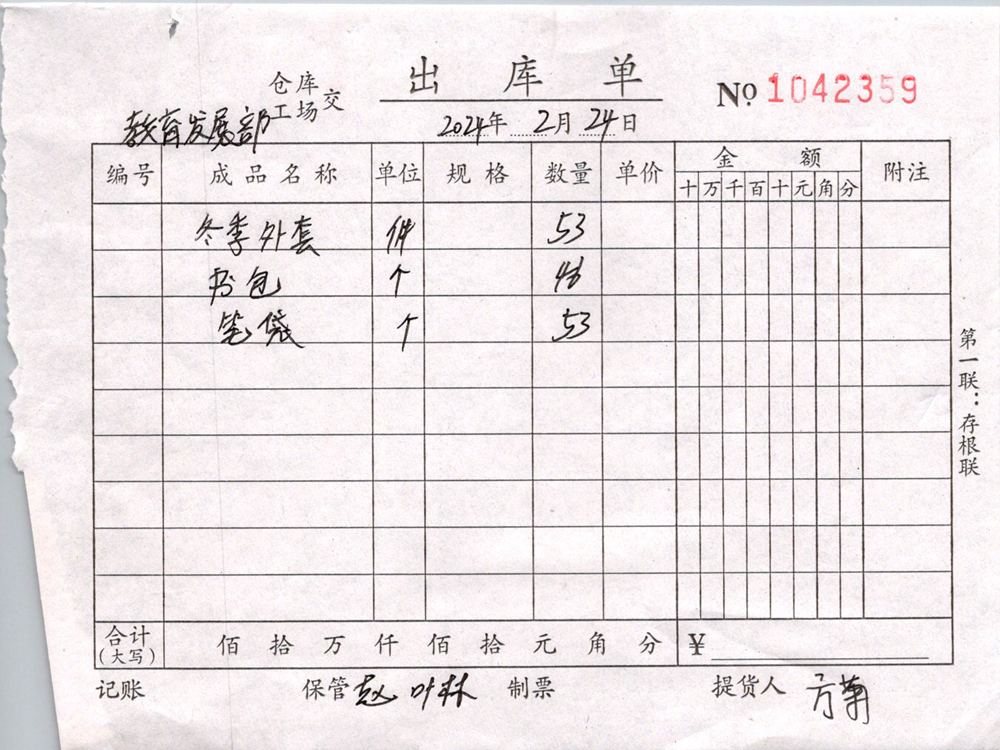 出库单
仓库
工场交
教育发展部
No 1042359
2024年2月24日
编号 成品名称 单位 规格 数量 单价 金额 附注
十万千百十元角分
冬季外套 件 53
书包 个
笔袋 个 53
合计
(大写)
佰拾万仟佰拾元角分 ¥
记账 保管 赵叶林 制票 提货人 方菊
第一联:存根联